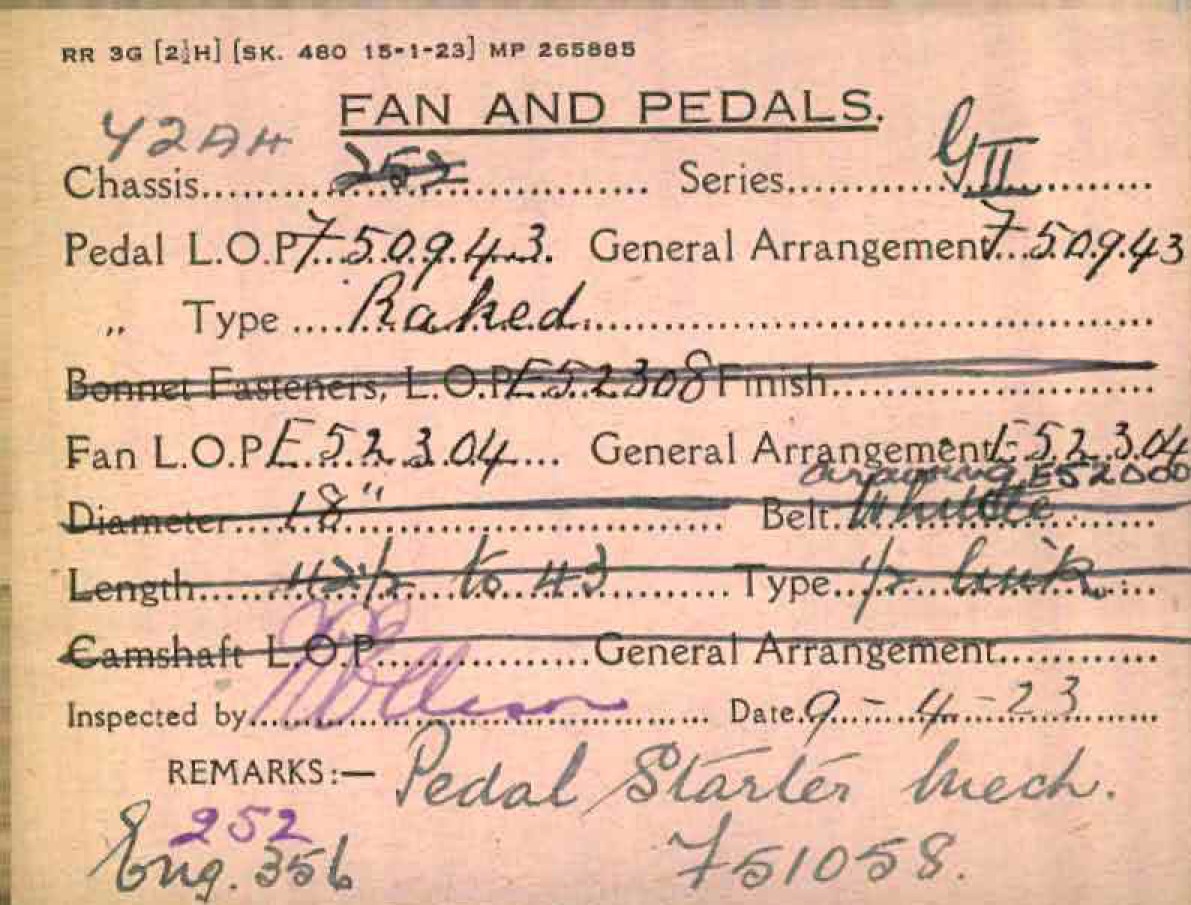 RR 3G [2½H] [SK. 480 15-1-23] MP 265885
FAN AND PEDALS.
42AH
Chassis........252........ Series........GII........
Pedal L.O.P F.50943. General Arrangement F.50943
„ Type ....Raked....
Bonnet Fasteners, L.O.P E52308 Finish........
Fan L.O.P E.52304... General Arrangement E.52304
E52000
Diameter....18"........ Belt. Whittle
Length....42½ to 43........ Type ½ link
Camshaft L.O.P........General Arrangement........
Inspected by........ Date. 9-4-23
REMARKS:— Pedal Starter Mech.
252
Eng. 356 F51058.